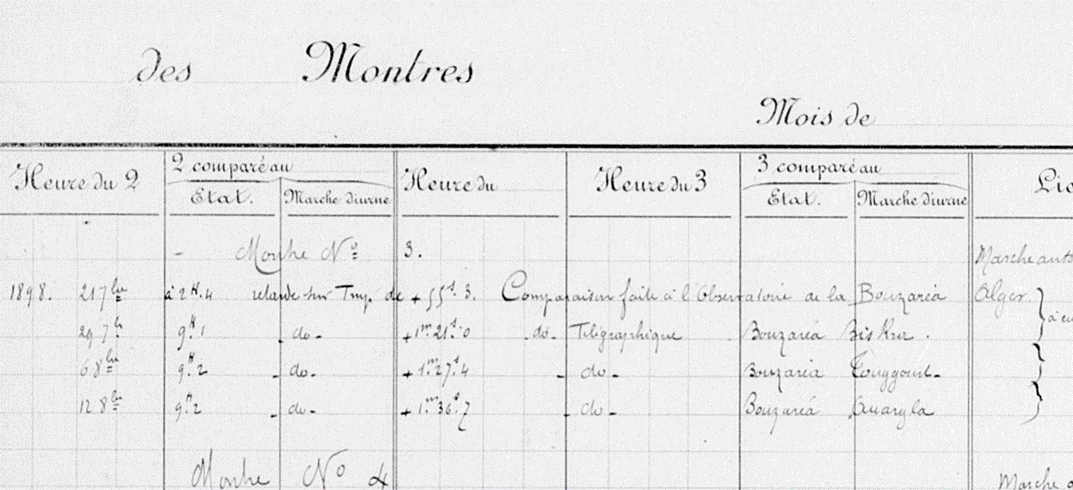 des Montres
Mois de
Heure du 2 2 comparé au Etat. Marche diurne Heure du Heure du 3 3 comparé au Etat. Marche diurne Lie
- Montre Nº 3. Marche ant
1898. 21 7bre à 2H.4 retarde sur Tmp. de + 55s.3. Comparaison faite à l'Observatoire de la Bouzaréa Alger.
29 7b 9H.1 - do - +1m21s.0 - do - Télégraphique Bouzaréa Biskra.
6 8bre 9H.2 - do - +1m27s.4 - do - Bouzaréa Touggourt -
12 8bre 9H.2 - do - +1m36s.7 - do - Bouzaréa Ouargla
Montre Nº 4 Marche